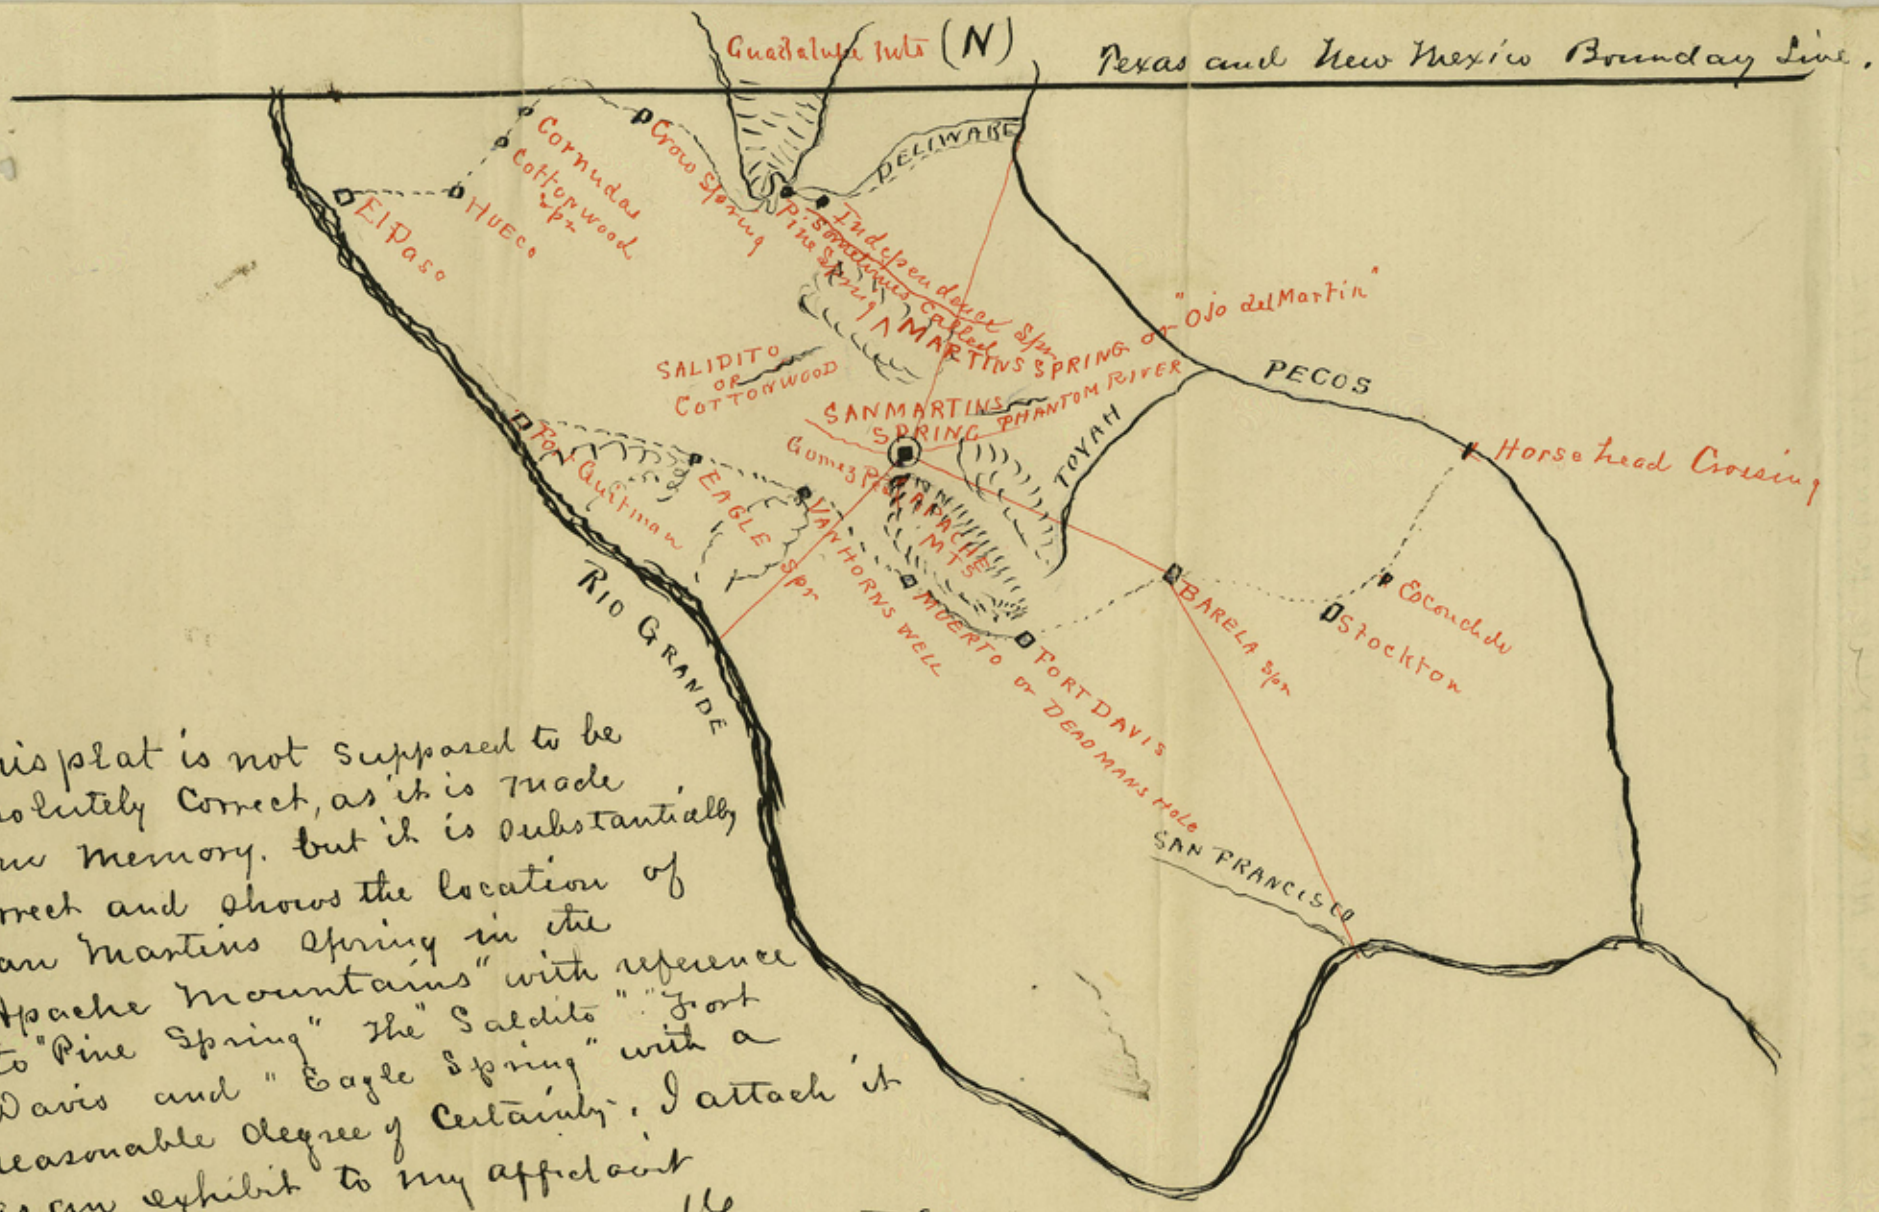 Guadalupe Mts (N)
Texas and New Mexico Boundary Line.
Cornudas
Cottonwood
Spr
Crow Spring
DELIWARE
El Paso
HUECO
Pine Spring
Independence Spr
Sometimes Called
MARTINS SPRING or "Ojo del Martin"
SALIDITO
OR
COTTONWOOD
SAN MARTINS
SPRING
PHANTOM RIVER
PECOS
TOYAH
Horse head Crossing
Fort Quitman
EAGLE
Spr
Gomez
APACHE
MTS
VAN HORNS WELL
MUERTO or DEAD MANS HOLE
FORT DAVIS
BARELA Spr
Stockton
RIO GRANDE
SAN FRANCISCO
is plat is not supposed to be
olutely Correct, as it is made
memory. but it is substantially
rrect and shows the location of
an Martins Spring in the
Apache Mountains" with reference
to "Pine Spring" the "Saldito" "Fort
Davis and "Eagle Spring" with a
reasonable degree of Certainty. I attach it
an exhibit to my affidavit